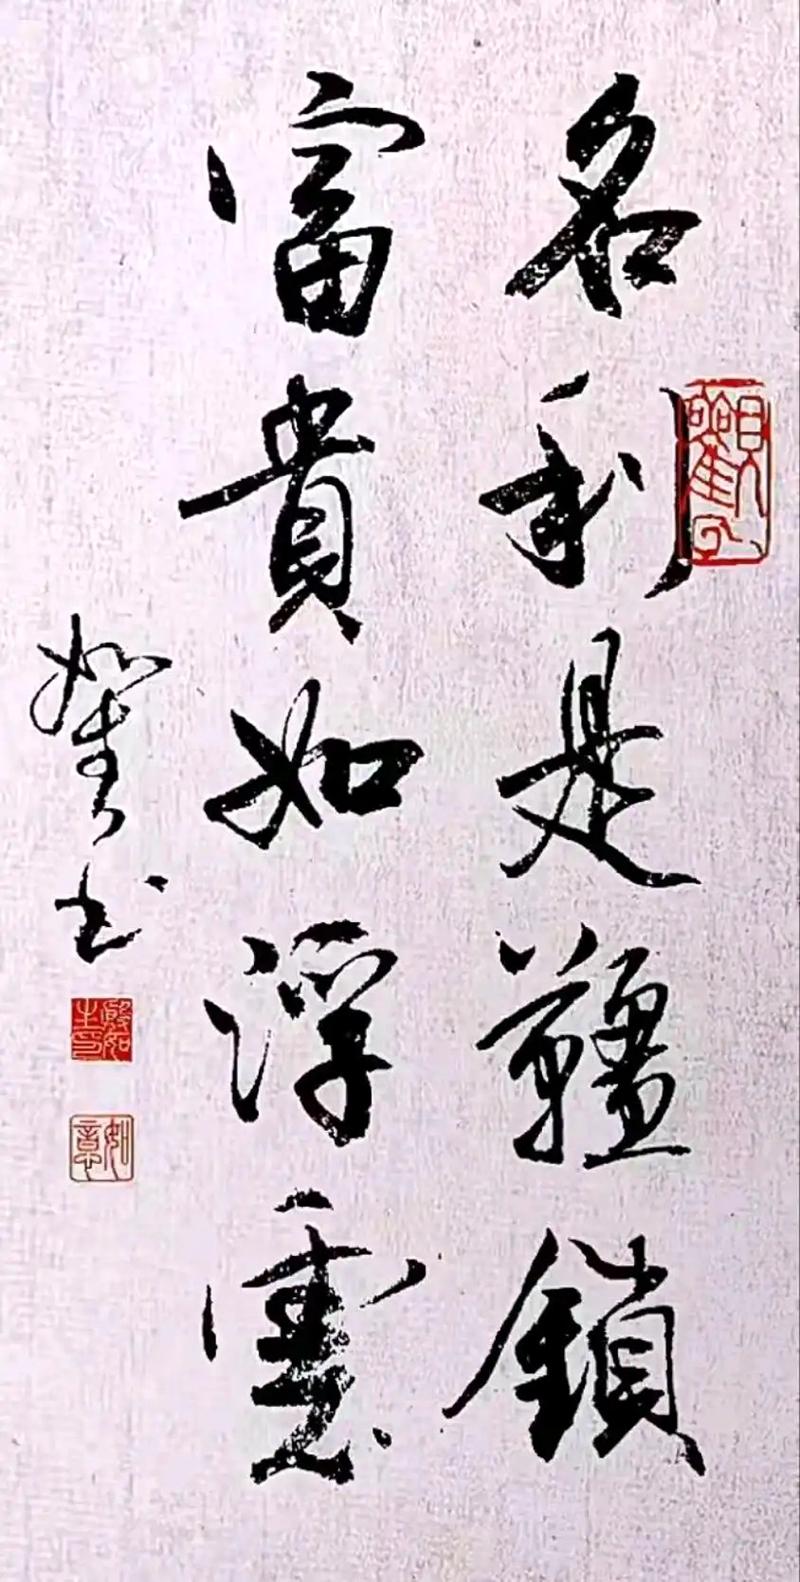 名利是韁鎖
富貴如浮雲
书
如意